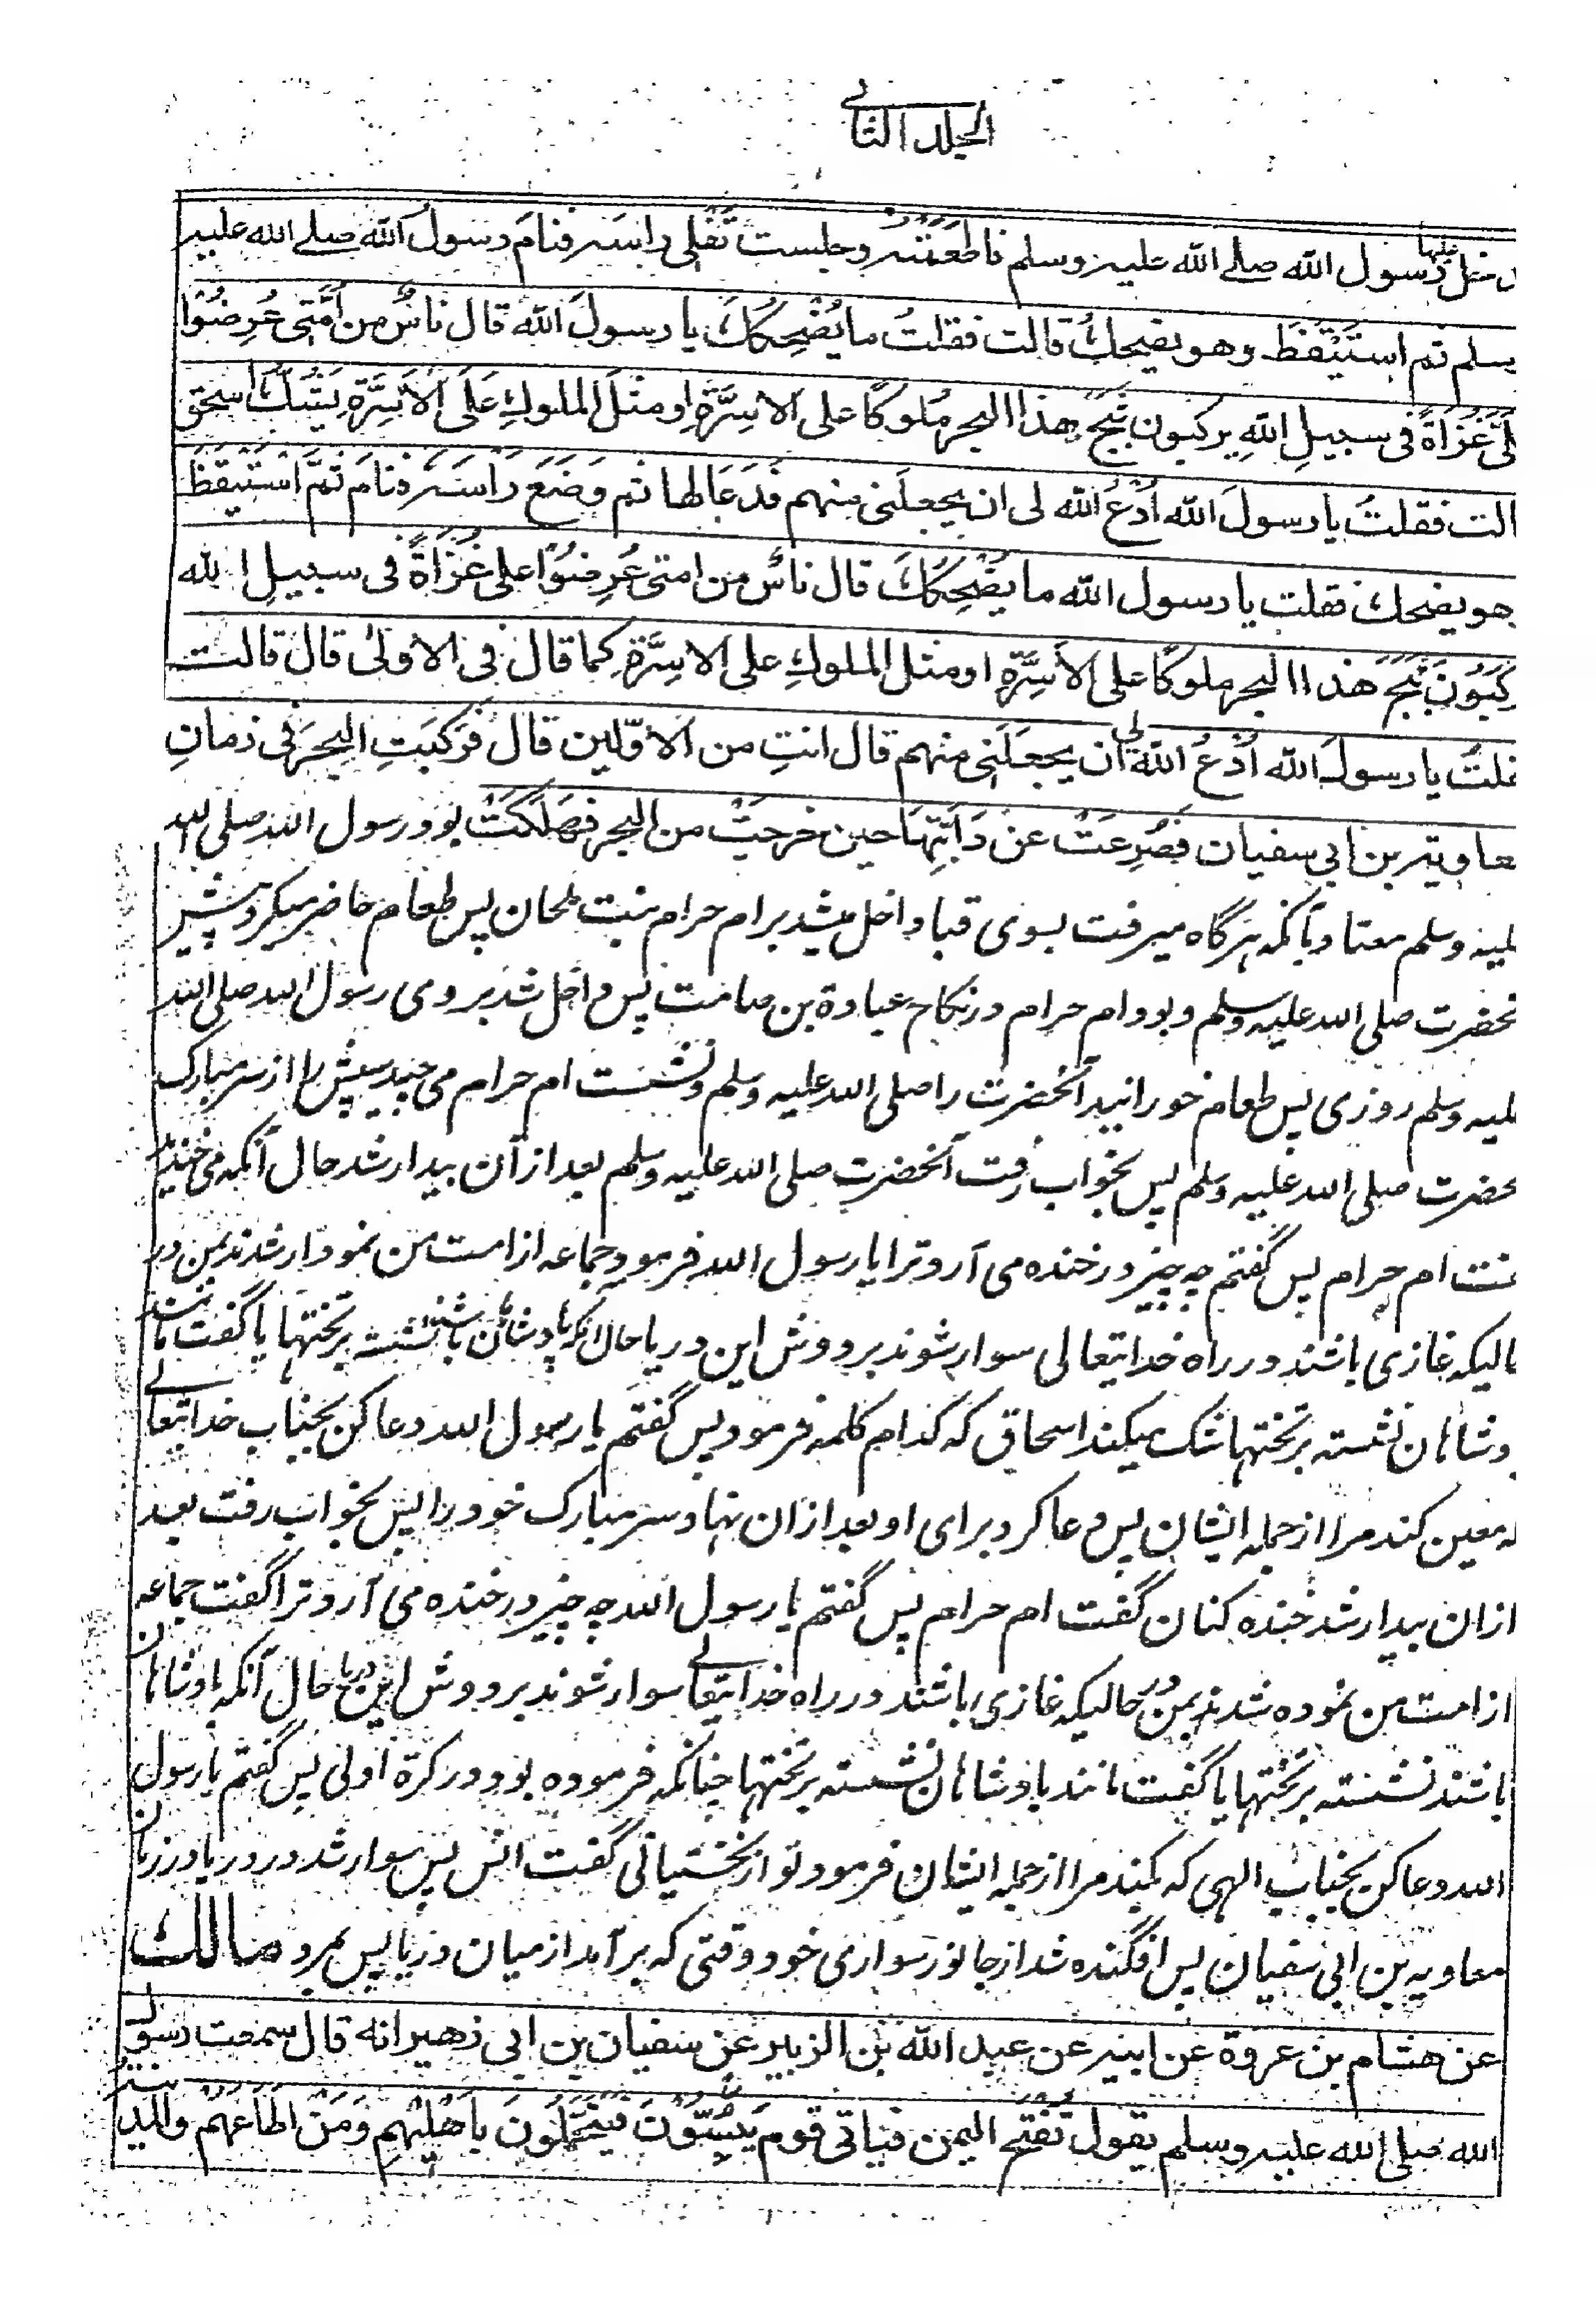 الجلد الثاني
دخل عليها رسول الله صلے الله عليه وسلم فاطعَمَتْه وجلست تَفْلِى راسَه فنامَ رسولُ الله صلے الله عليه
وسلم ثم استَيْقَظَ وهو يضحك قالت فقلتُ ما يُضْحِكُكَ يا رسولَ الله قال ناسٌ من اُمَّتى عُرِضُوْا
عَلَىَّ غُزَاةً فى سبيلِ اللهِ يركبون ثَبَجَ هذا البحر مُلوكًا على الاَسِرَّةِ او مثلَ الملوكِ عَلَى الاَسِرَّةِ يَشُكُّ اسحٰق
قالت فقلتُ يا رسولَ الله اُدْعُ الله لى ان يجعلَنى منهم فدَعَا لها ثم وَضَعَ رَاسَه فنامَ ثمّ استَيْقَظَ
وهو يضحك فقلت يا رسول الله ما يُضْحِكُكَ قال ناسٌ من امتى عُرِضُوْا على غُزَاةً فى سبيلِ الله
يركَبُوْنَ ثَبَجَ هذا البحر ملوكًا على الاَسِرَّةِ او مثل الملوكِ على الاسِرَّةِ كما قال فى الاولىٰ قال قالت
فقلتُ يا رسولَ الله اُدْعُ اللهَ لى ان يجعَلَنى منهم قال انتِ من الاوّلين قال فرَكبَتِ البحرَ فى زمانِ
معاوية بن ابى سفيان فصُرِعَتْ عن دَابَّتِهَا حين خرجَتْ من البحر فهَلَكَتْ بود رسول الله صلى الله
عليه وسلم معتاد بآنكه هرگاه ميرفت بسوى قبا داخل ميشد برام حرام بنت ملحان پس طعام حاضر ميكرد پيش
آنحضرت صلى الله عليه وسلم و بود ام حرام در نكاح عبادة بن صامت پس داخل شد بروى رسول الله صلى الله
عليه وسلم روزى پس طعام خورانيد آنحضرت را صلى الله عليه وسلم و نشست ام حرام مى چيد سپش را از سر مبارك
آنحضرت صلى الله عليه وسلم پس بخواب رفت آنحضرت صلى الله عليه وسلم بعد از آن بيدار شد حال آنكه مى خنديد
گفت ام حرام پس گفتم چه چيز در خنده مى آرد ترا يا رسول الله فرمود جماعه از امت من نمودار شدند بمن در
حاليكه غازى باشند در راه خدايتعالى سوار شوند بر دوش اين دريا حال آنكه پادشاهان باشند نشسته بر تختها يا گفت مانند
پادشاهان نشسته بر تختها شك ميكند اسحاق كه كدام كلمه فرمود پس گفتم يا رسول الله دعا كن بجناب خدايتعالے
كه معين كند مرا از جمله ايشان پس دعا كرد براى او بعد ازان نهاد سر مبارك خود را پس بخواب رفت بعد
ازان بيدار شد خنده كنان گفت ام حرام پس گفتم يا رسول الله چه چيز در خنده مى آرد ترا گفت جماعه
از امت من نموده شدند بمن در حاليكه غازى باشند در راه خدايتعالے سوار شوند بر دوش اين دريا حال آنكه پادشاهان
باشند نشسته بر تختها يا گفت مانند پادشاهان نشسته بر تختها چنانكه فرموده بود در كرة اولى پس گفتم يا رسول
الله دعا كن بجناب الهى كه كند مرا از جمله ايشان فرمود تو از نخستيانى گفت انس پس سوار شد در دريا در زمان
معاويه بن ابى سفيان پس افگنده شد از جانور سوارى خود وقتى كه برآمد از ميان دريا پس بمرد مالك
عن هشام بن عروة عن ابيه عن عبد الله بن الزبير عن سفيان بن ابى زهير انه قال سمعت رسول
الله صلى الله عليه وسلم يقول تُفْتَح اليمن فياتى قوم يَبُسُّوْنَ فيَتَحَمَّلُوْنَ بِاَهْلِيْهِم وَمَنْ اَطَاعَهُمْ والمدينة